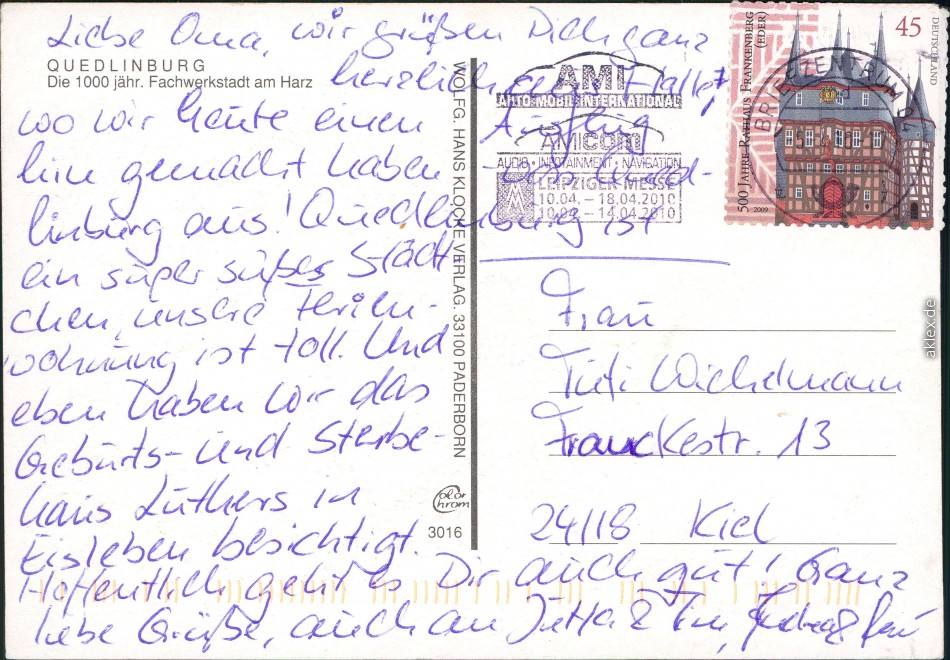 Liebe Oma, wir grüßen Dich ganz
QUEDLINBURG
Die 1000 jähr. Fachwerkstadt am Harz
herzlich aus Halle,
wo wir heute einen Ausflug
hin gemacht haben von Qued-
linburg aus! Quedlinburg ist
ein super süßes Städt
chen, unsere Ferien-
wohnung ist toll. Und
eben haben wir das
Geburts- und Sterbe-
haus Luthers in
Eisleben besichtigt.
Hoffentlich geht's Dir auch gut! Ganz
liebe Grüße, auch an Jutta & Tim,
WOLFG. HANS KLOCKE VERLAG. 33100 PADERBORN
Color
Chrom
3016
AMI
AUTO MOBIL INTERNATIONAL
AMICOM
AUDIO • INFOTAINMENT • NAVIGATION
LEIPZIGER MESSE
10.04. – 18.04.2010
10.04. – 14.04.2010
BRIEFZENTRUM
500 JAHRE RATHAUS FRANKENBERG
(EDER)
45
DEUTSCHLAND
2009
Frau
Wichelmann
Franckestr. 13
24118 Kiel
aklex.de